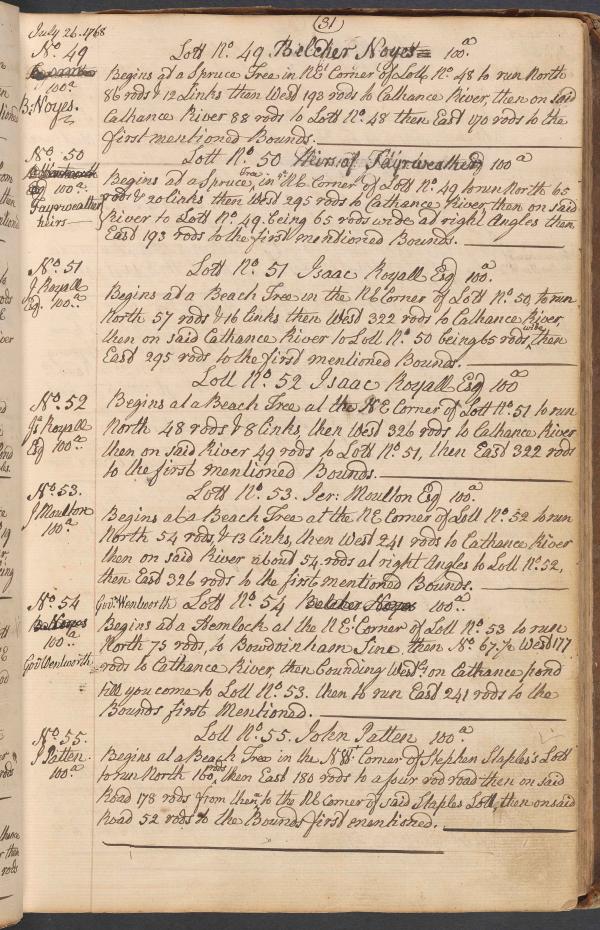 (31)
July 26. 1768
No. 49
100.a
B: Noyes.
Lott No. 49. Belcher Noyes 100.a
Begins at a Spruce Tree in NEt Corner of Lott No. 48 to run North
86 rods & 12 Links then West 193 rods to Cathance River, then on said
Cathance River 88 rods to Lott No. 48 then East 170 rods to the
first mentioned Bounds.
No. 50
Esq 100.a
Fayrweather
heirs
Lott No. 50 Heirs of Fayrweather 100 a
Begins at a Spruce Tree, in ye NE Corner of Lott No. 49 to run North 65
rods & 20 links then West 295 rods to Cathance River, then on said
River to Lott No. 49. being 65 rods wide at right Angles then
East 193 rods to the first mentioned Bounds.
No. 51
J Royall
Esq. 100.a
Lott No. 51 Isaac Royall Esq 100.a
Begins at a Beach Tree in the NE Corner of Lott No. 50, to run
North 57 rods & 16 links then West 322 rods to Cathance River,
then on said Cathance River to Lott No. 50 being 65 rods wide, then
East 295 rods to the first mentioned Bounds.
No. 52
Js Royall
Esq 100.a
Lott No. 52 Isaac Royall Esq 100 a
Begins at a Beach Tree at the NE Corner of Lott No. 51 to run
North 48 rods & 8 links, then West 326 rods to Cathance River
then on said River 49 rods to Lott No. 51, then East 322 rods
to the first mentioned Bounds.
No. 53.
J Moulton
100.a
Lott No. 53. Jer: Moulton Esq 100.a
Begins at a Beach Tree at the NE Corner of Lott No. 52 to run
North 54 rods & 13 links, then West 241 rods to Cathance River
then on said River about 54 rods at right Angles to Lott No. 52,
then East 326 rods to the first mentioned Bounds.
No. 54
B: Noyes
100 a
Govr Wentworth
Govr. Wentworth Lott No. 54 Belcher Noyes 100.a
Begins at a Hemlock at the NEt Corner of Lott No. 53 to run
North 75 rods, to Bowdoinham Line, then No. 67.½ West 177
rods to Cathance River, then Bounding Westly on Cathance pond
till you come to Lott No. 53. then to run East 241 rods to the
Bounds first Mentioned.
No. 55.
J Patten.
100.a
Lott No. 55. John Patten 100.a
Begins at a Beach Tree in the NWt Corner of Stephen Staples's Lott
to run North 160 rods, then East 180 rods to a four rod road then on said
Road 178 rods from thence to the NE Corner of said Staples Lott, then on said
Road 52 rods to the Bounds first mentioned.